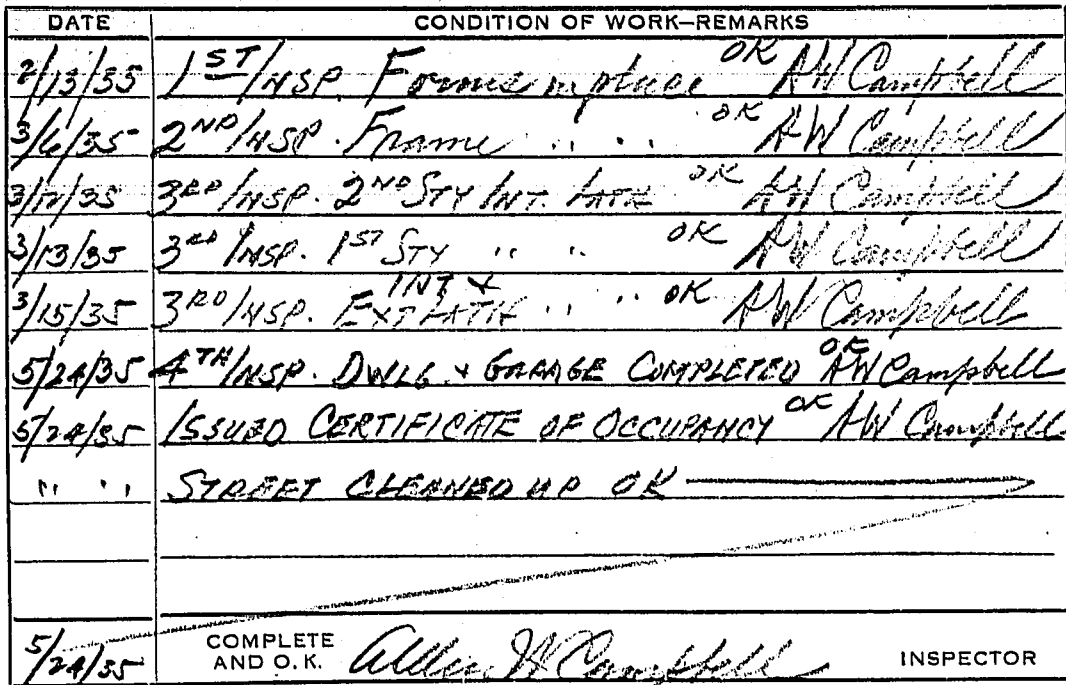 DATE CONDITION OF WORK—REMARKS
2/13/35 1ST INSP. Forms in place OK AW Campbell
3/6/35 2ND INSP. Frame " " OK AW Campbell
3/12/35 3RD INSP. 2ND STY INT. LATH OK AW Campbell
3/13/35 3RD INSP. 1ST STY " " OK AW Campbell
3/15/35 3RD INSP. INT & EXT LATH " " OK AW Campbell
5/24/35 4TH INSP. DWLG & GARAGE COMPLETED OK AW Campbell
5/24/35 ISSUED CERTIFICATE OF OCCUPANCY OK AW Campbell
" " STREET CLEANED UP OK
5/24/35 COMPLETE AND O. K. Allen W Campbell INSPECTOR